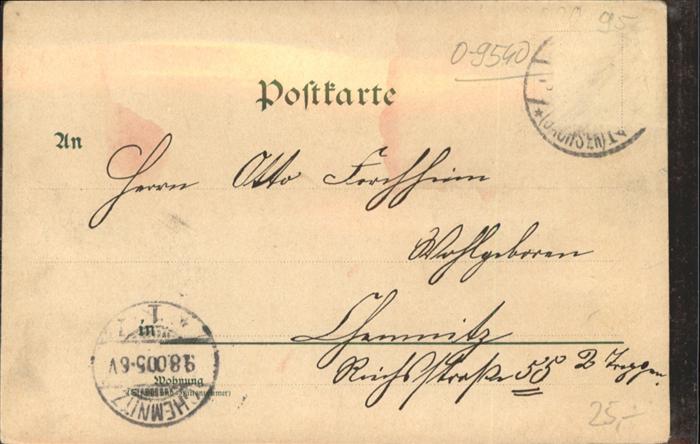 95
0-9540
Postkarte
(SACHSEN)
An
Herrn Otto Forchheim
Wohlgeboren
in Chemnitz
Reichsstraße 55 2 Treppen.
CHEMNITZ
1
9.8.00.5-6V
Wohnung
25,-